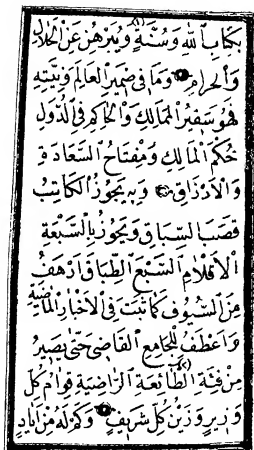 بكتاب الله وسنة ويبرهن عن الحلال
والحرام وما فى ضمير العالم ونيته
فهو سفير الممالك والحاكم فى الدول
حكم المالك ومفتاح السعادة
والأرزاق وبه يجوز الكاتب
قصب السباق ويجوز بالسبعة
الأقلام السبع الطباق أرهف
من السيوف كما ثبت فى الأخبار الماضية
واعطف للجامع القاصى حتى يصير
من فئة الطائعة الراضية قوام كل
وزير وزين كل شريف وكم له من أياد